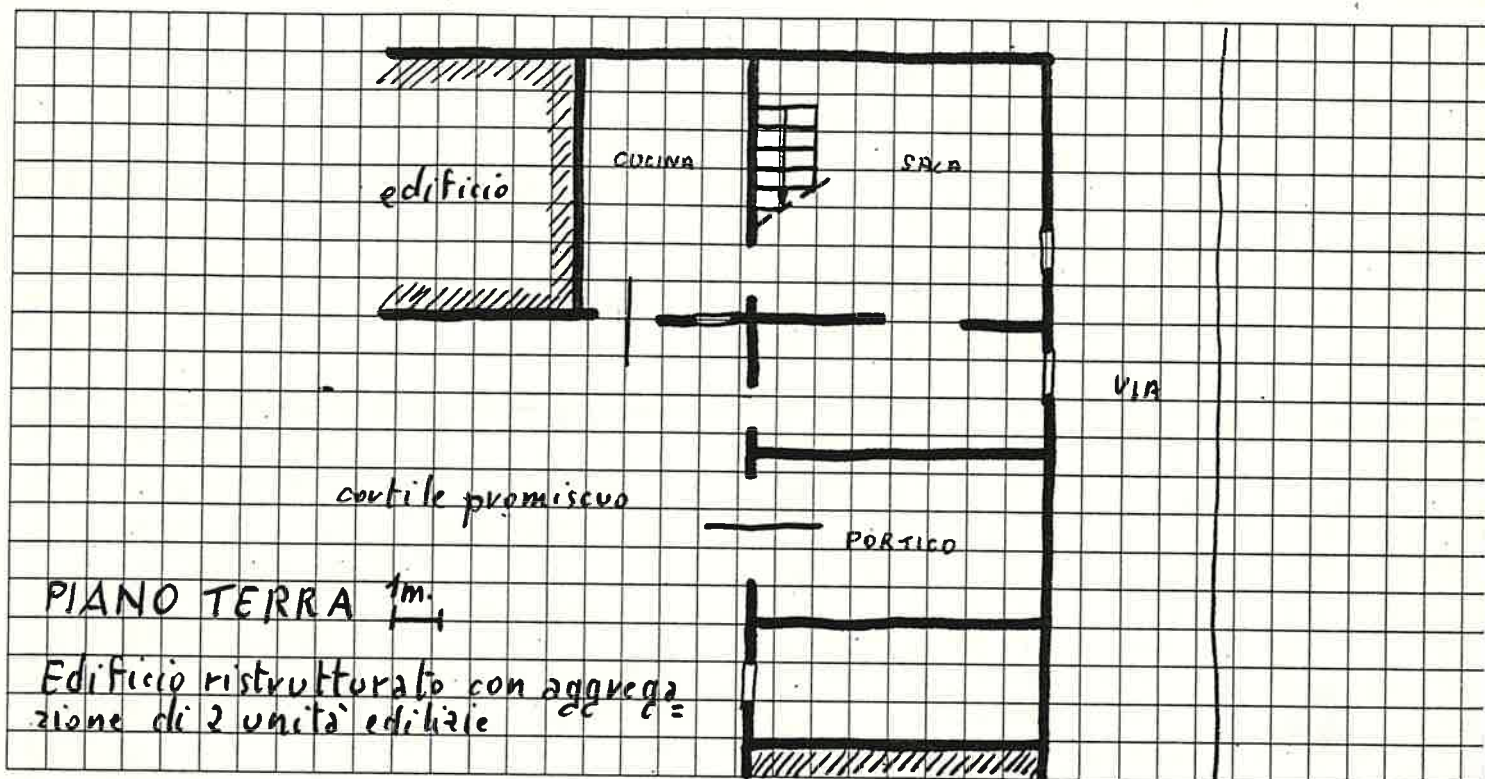 CUCINA
SALA
edificio
VIA
cortile promiscuo
PORTICO
PIANO TERRA 1m.
Edificio ristrutturato con aggrega=
zione di 2 unità edilizie